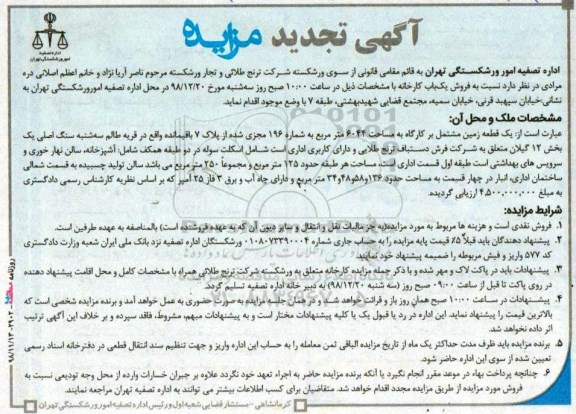 اداره تصفیه
امور ورشکستگی تهران
آگهی تجدید مزایده
اداره تصفیه امور ورشکستگی تهران به قائم مقامی قانونی از سوی ورشکسته شرکت ترنج طلائی و تجار ورشکسته مرحوم ناصر آریا نژاد و خانم اعظم اصلانی دره
مرادی در نظر دارد نسبت به فروش یکباب کارخانه با مشخصات ذیل در ساعت ۱۰:۰۰ صبح روز سه‌شنبه مورخ ۹۸/۱۲/۲۰ در محل اداره تصفیه امورورشکستگی تهران به
نشانی:خیابان سپهبد قرنی، خیابان سمیه، مجتمع قضایی شهیدبهشتی، طبقه ۷ با وضع موجود اقدام نماید.
مشخصات ملک و محل آن:
عبارت است از: یک قطعه زمین مشتمل بر کارگاه به مساحت ۶۰۴۲ متر مربع به شماره ۱۹۶ مجزی شده از پلاک ۷ باقیمانده واقع در قریه طالم سه‌شنبه سنگ اصلی یک
بخش ۱۲ گیلان متعلق به شرکت فرش دستباف ترنج طلایی و دارای کاربری اداری است شامل اسکلت سوله در دو طبقه همکف شامل: آشپزخانه، سالن نهار خوری و
سرویس های بهداشتی است طبقه اول قسمت اداری است. مساحت هر طبقه حدود ۱۲۵ متر مربع و مجموعاً ۲۵۰ متر مربع می باشد سالن تولید چسبیده به قسمت شمالی
ساختمان اداری، انبار در چهار قسمت به مساحت حدود ۱۳۶و۵۸و۴۸و۳۴ متر مربع و دارای چاه آب و برق ۳ فاز ۲۵ آمپر که بر اساس نظریه کارشناس رسمی دادگستری
به مبلغ ۴,۵۰۰,۰۰۰,۰۰۰ ارزیابی گردیده.
شرایط مزایده:
۱. فروش نقدی است و هزینه ها مربوط به مورد مزایده(به جز مالیات نقل و انتقال و سایر دیون آن که به عهده فروشنده است) بالمناصفه به عهده طرفین است.
۲. پیشنهاد دهندگان باید قبلاً ۵٪ قیمت پایه مزایده را به حساب جاری شماره ۰۱۰۸۰۷۳۳۹۰۰۰۴ ورشکستگان اداره تصفیه نزد بانک ملی ایران شعبه وزارت دادگستری
کد ۵۷۷ واریز و فیش مربوطه را ضمیمه پیشنهاد خود نمایند.
۳. پیشنهادات باید در پاکت لاک و مهر شده و با ذکر جمله مزایده کارخانه متعلق به ورشکسته شرکت ترنج طلائی همراه با مشخصات کامل و محل اقامت پیشنهاد دهنده
در روی پاکت تا قبل از ساعت ۰۹:۰۰ صبح روز (سه شنبه ۹۸/۱۲/۲۰) به دبیر خانه اداره تصفیه تسلیم گردد.
۴. پیشنهادات در ساعت ۱۰:۰۰ صبح همان روز باز و قرائت خواهد شد و در همان جلسه مزایده به صورت حضوری به عمل خواهد آمد و برنده مزایده شخصی است که
بالاترین قیمت را پیشنهاد نماید. این اداره در رد یا قبول یک یا کلیه پیشنهادات مختار است و به پیشنهادات مبهم، مشروط، فاقد سپرده و بر خلاف این آگهی ترتیب
اثر داده نخواهد شد.
۵. برنده مزایده باید ظرف مدت حداکثر یک ماه از تاریخ مزایده الباقی ثمن معامله را به حساب این اداره واریز و جهت تنظیم سند انتقال قطعی در دفترخانه اسناد رسمی
تعیین شده از سوی این اداره حاضر شود.
۶. چنانچه پرداخت بهاء در موعد مقرر انجام نگیرد یا آنکه برنده مزایده حاضر به اجراء تعهد خود نگردد علاوه بر جبران خسارات وارده از محل وجه تودیعی نسبت به
فروش مورد مزایده از طریق مزایده مجدد اقدام خواهد شد. متقاضیان برای کسب اطلاعات بیشتر می توانند به اداره تصفیه تهران مراجعه نمایند.
کرمانشاهی - مستشار قضایی شعبه اول و رئیس اداره تصفیه امور ورشکستگی تهران
روزنامه ۹۸/۱۱/۱۳-۲۹۰۲